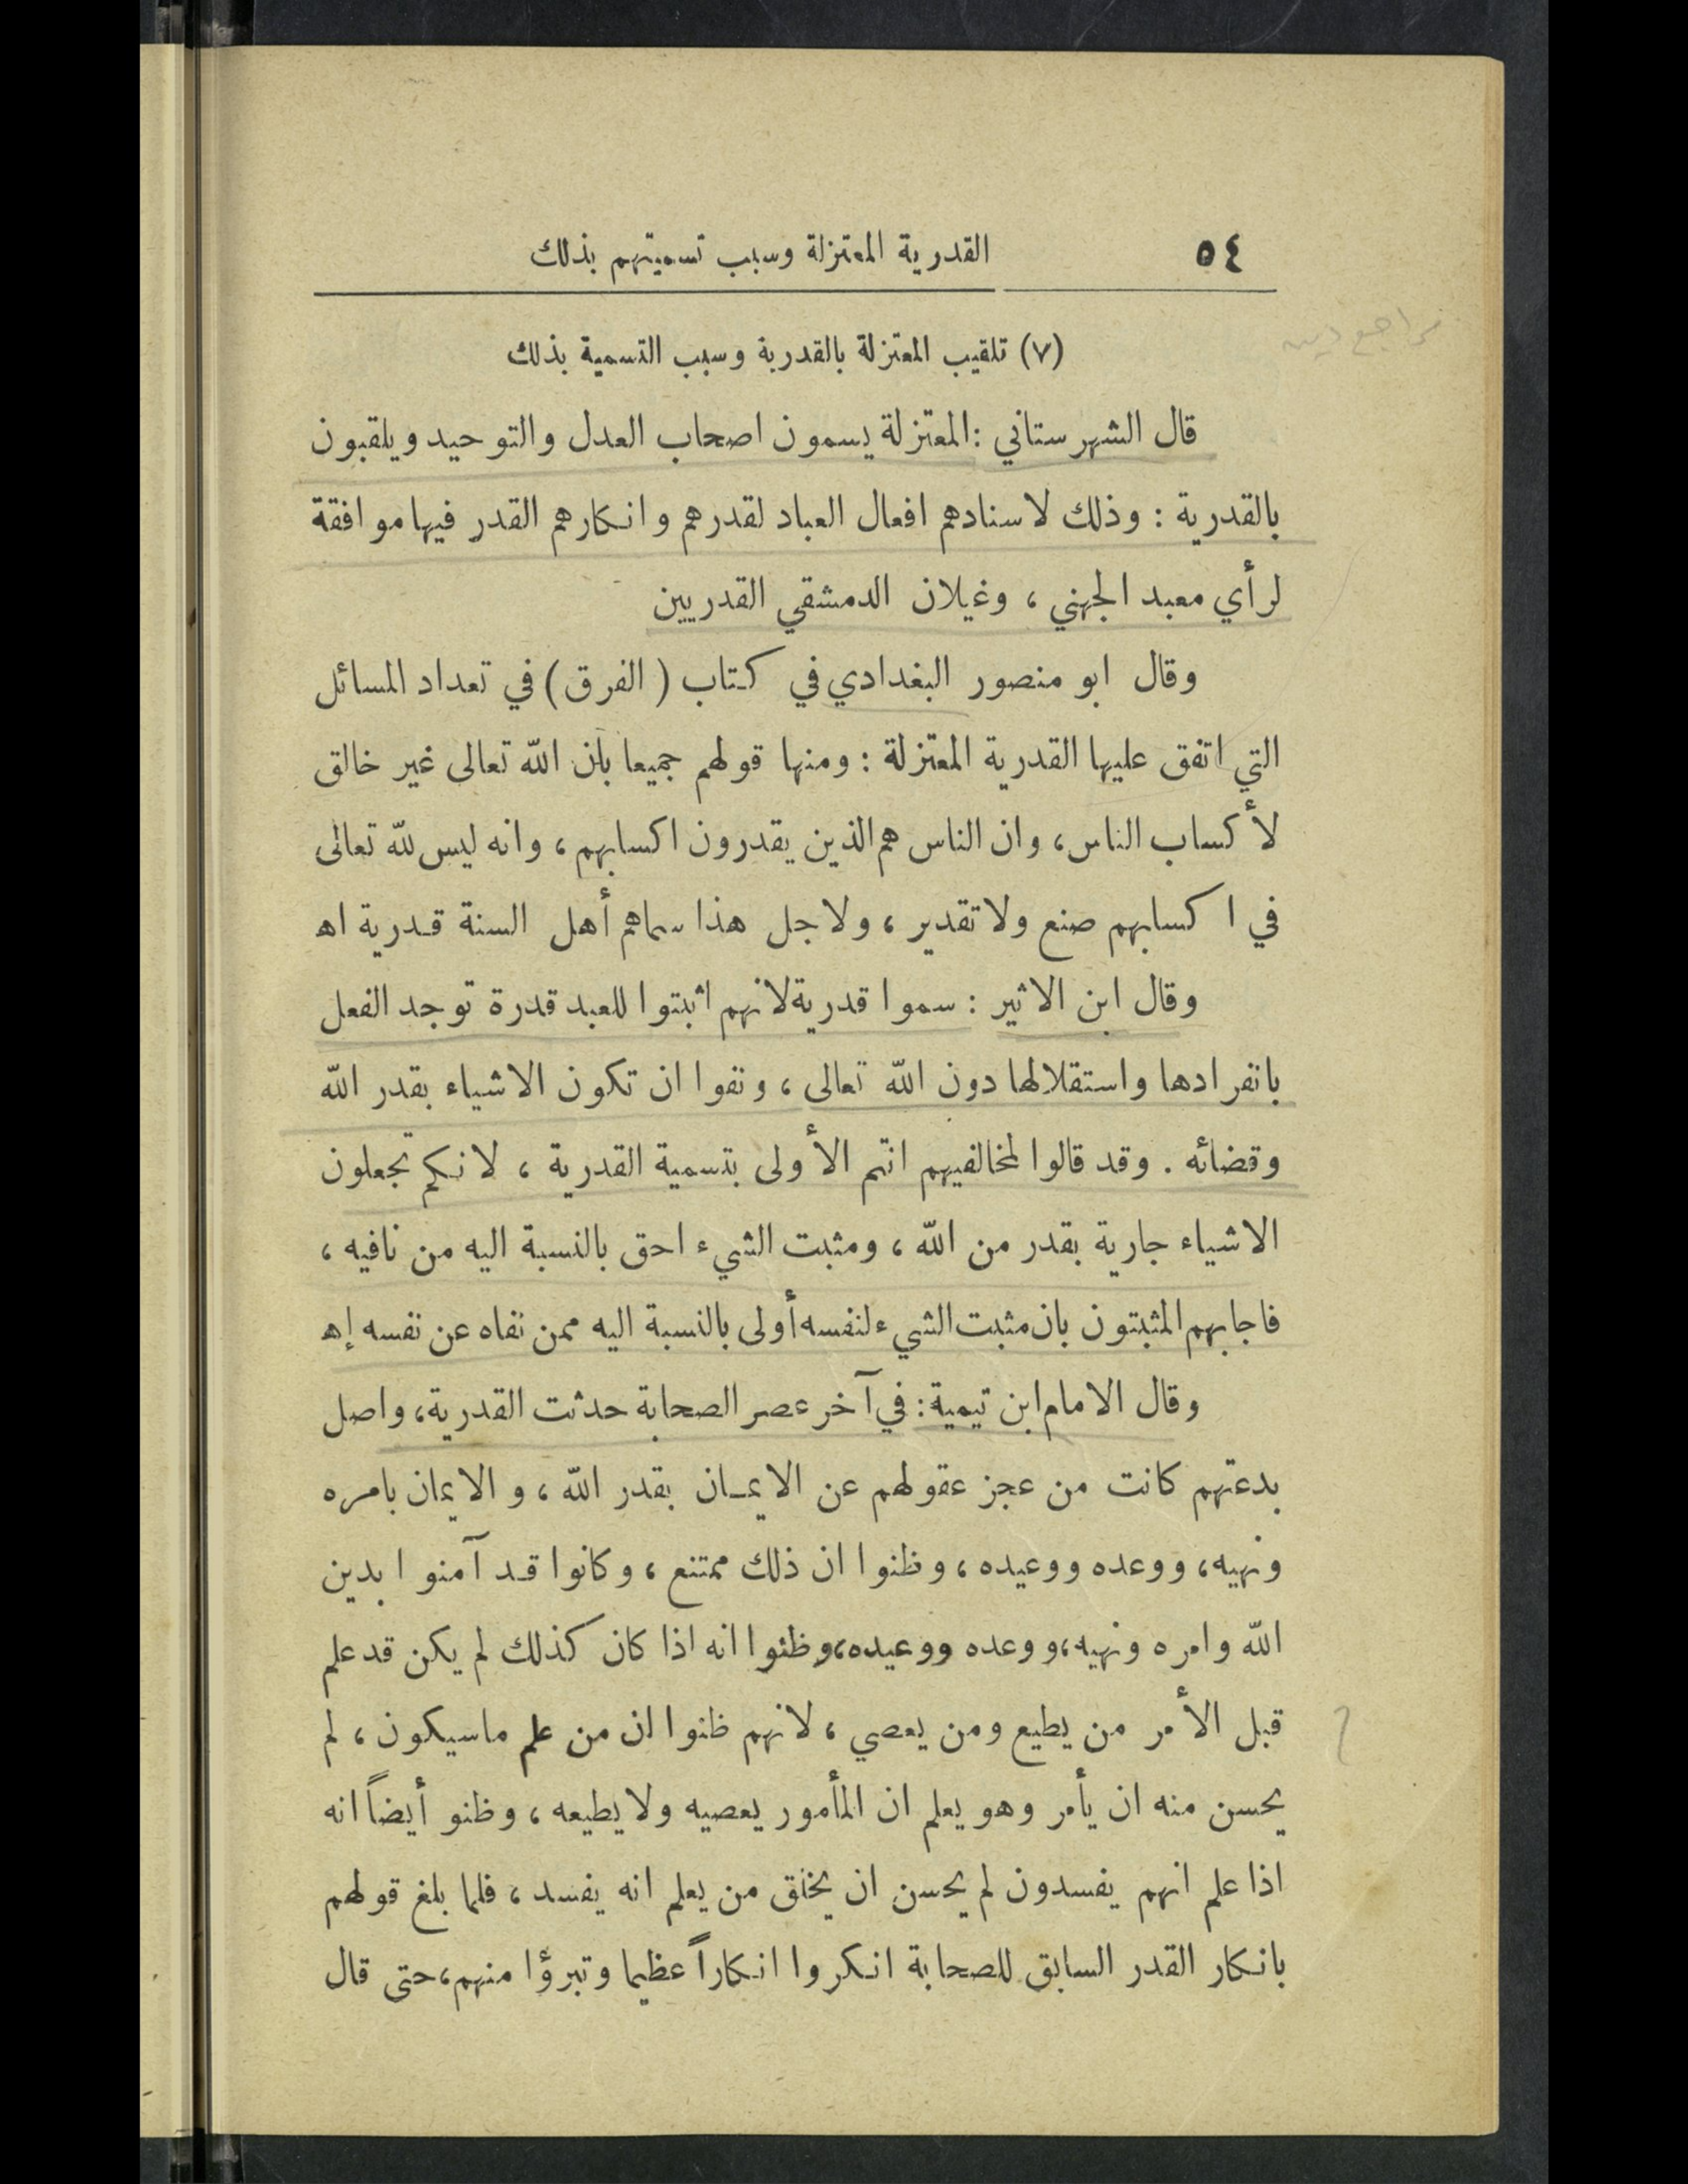 ٥٤ القدرية المعتزلة وسبب تسميتهم بذلك
(٧) تلقيب المعتزلة بالقدرية وسبب التسمية بذلك
قال الشهرستاني : المعتزلة يسمون اصحاب العدل والتوحيد ويلقبون
بالقدرية : وذلك لاسنادهم افعال العباد لقدرهم وانكارهم القدر فيها موافقة
لرأي معبد الجهني ، وغيلان الدمشقي القدريين
وقال ابو منصور البغدادي في كتاب ( الفرق ) في تعداد المسائل
التي اتفق عليها القدرية المعتزلة : ومنها قولهم جميعا بأن الله تعالى غير خالق
لأكساب الناس ، وان الناس هم الذين يقدرون اكسابهم ، وانه ليس لله تعالى
في اكسابهم صنع ولا تقدير ، ولاجل هذا سماهم أهل السنة قدرية اه
وقال ابن الاثير : سموا قدرية لانهم اثبتوا للعبد قدرة توجد الفعل
بانفرادها واستقلالها دون الله تعالى ، ونفوا ان تكون الاشياء بقدر الله
وقضائه . وقد قالوا لمخالفيهم انتم الأولى بتسمية القدرية ، لانكم تجعلون
الاشياء جارية بقدر من الله ، ومثبت الشيء احق بالنسبة اليه من نافيه ،
فاجابهم المثبتون بان مثبت الشيء لنفسه أولى بالنسبة اليه ممن نفاه عن نفسه إه
وقال الامام ابن تيمية : في آخر عصر الصحابة حدثت القدرية ، واصل
بدعتهم كانت من عجز عقولهم عن الايمـان بقدر الله ، والايمان بامره
ونهيه ، ووعده ووعيده ، وظنوا ان ذلك ممتنع ، وكانوا قد آمنوا بدين
الله وامره ونهيه ، ووعده ووعيده ، وظنوا انه اذا كان كذلك لم يكن قد علم
قبل الأمر من يطيع ومن يعصي ، لانهم ظنوا ان من علم ماسيكون ، لم
يحسن منه ان يأمر وهو يعلم ان المأمور يعصيه ولا يطيعه ، وظنو أيضاً انه
اذا علم انهم يفسدون لم يحسن ان يخلق من يعلم انه يفسد ، فلما بلغ قولهم
بانكار القدر السابق للصحابة انكروا انكاراً عظيما وتبرؤا منهم ، حتى قال